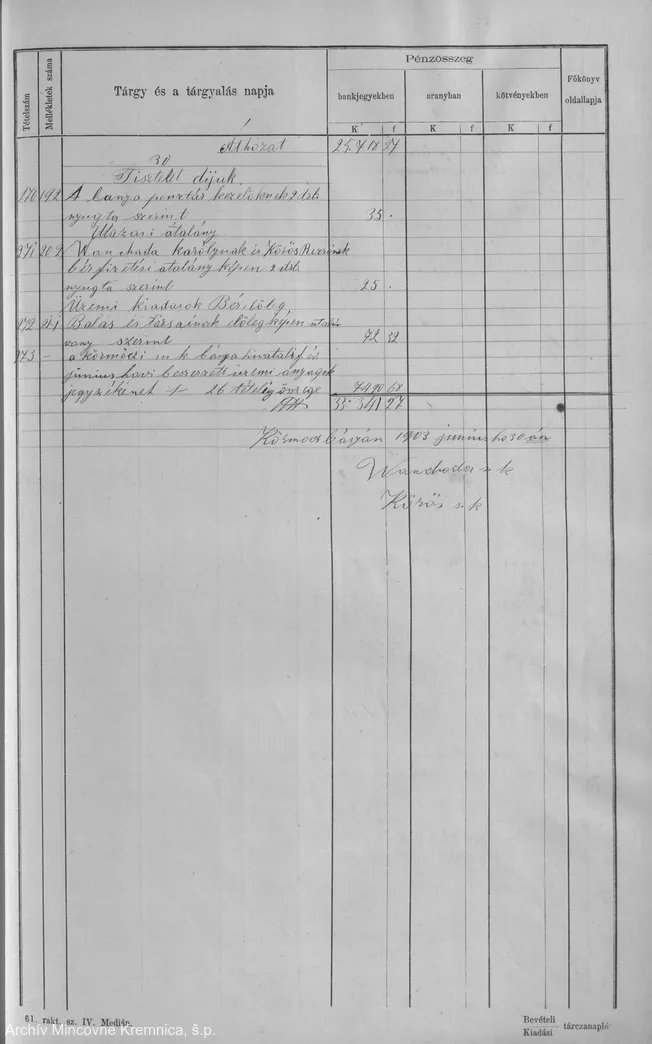 Tételszám
Mellékletek száma
Tárgy és a tárgyalás napja
Pénzösszeg
bankjegyekben
aranyban
kötvényekben
Főkönyv
oldallapja
K f K f K f
Áthozat 25.718 27
30
Tisztelet dijak
270 192 A bánya pénztár kezelőknek 2 drb
nyugta szerint 35 .
Utazási átalány
271 209 Wanchada Károlynak és Kőrös Rezsőnek
bérfizetési átalány képen 2 drb
nyugta szerint 25 .
Üzemi kiadások Bérelőleg
272 211 Balás és társainak előleg képen
szerint 72 32
273 – a körmöczi m k bánya hivatal
június havi beszerzett üzemi anyagok
jegyzékének 1 26 tételig összege 7490 68
33 341 27
Körmöczbányán 1903 június hó 30 án
Wanchada s k
Kőrös s. k
61. rakt. sz. IV. Medián.
Bevételi
Kiadási
tárczanapló
Archív Mincovne Kremnica, š.p.